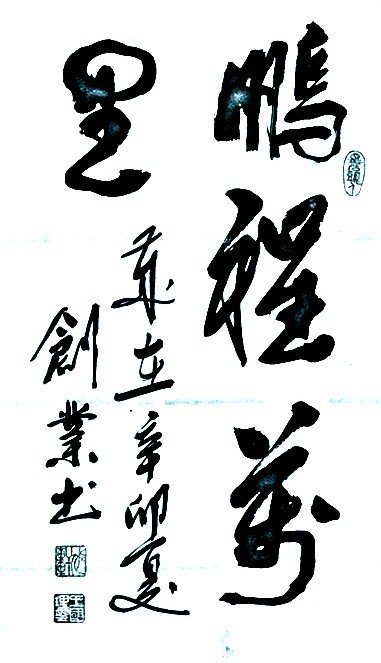 鵬程萬
里
歲在辛卯夏
創業书